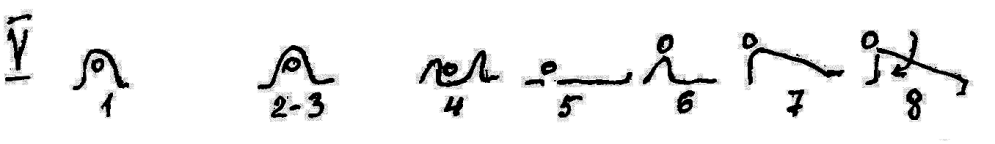 V
1 2-3 4 5 6 7 8